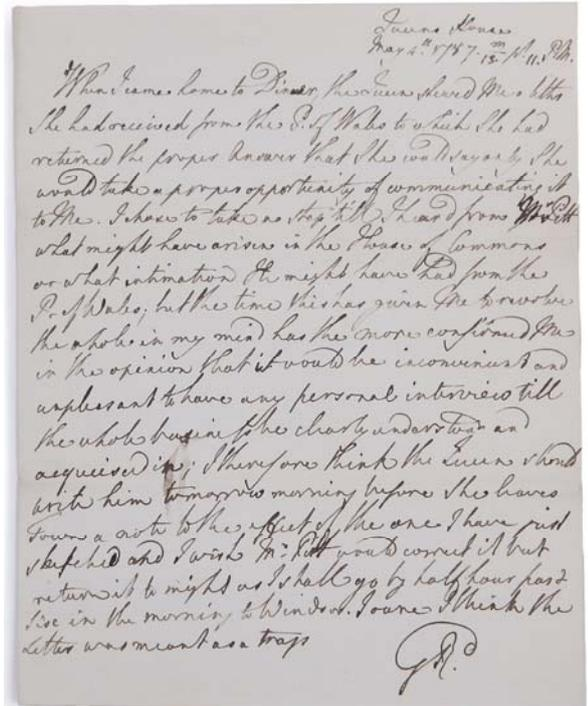 Queens House
May 4th 1787. 15 m pt 11. P.M.
When I came home to Dinner, the Queen shewed Me a letter
She had received from the P. of Wales to which She had
returned the proper Answer that She could say only She
would take a proper opportunity of communicating it
to Me. I chose to take no step till I heard from Mr Pitt
what might have arisen in the House of Commons
or what intimation He might have had from the
P. of Wales; but the time this has given Me to revolve
the whole in my mind has the more confirmed Me
in the opinion that it would be inconvenient and
unpleasant to have any personal interview till
the whole business be clearly understood and
acquiesced in; I therefore think the Queen should
write him tomorrow morning before She leaves
Town a note to the effect of the one I have just
sketched and I wish Mr Pitt would correct it but
return it to night as I shall go by half hour past
Six in the morning to Windsor. I owne I think the
Letter was meant as a trap
GR.